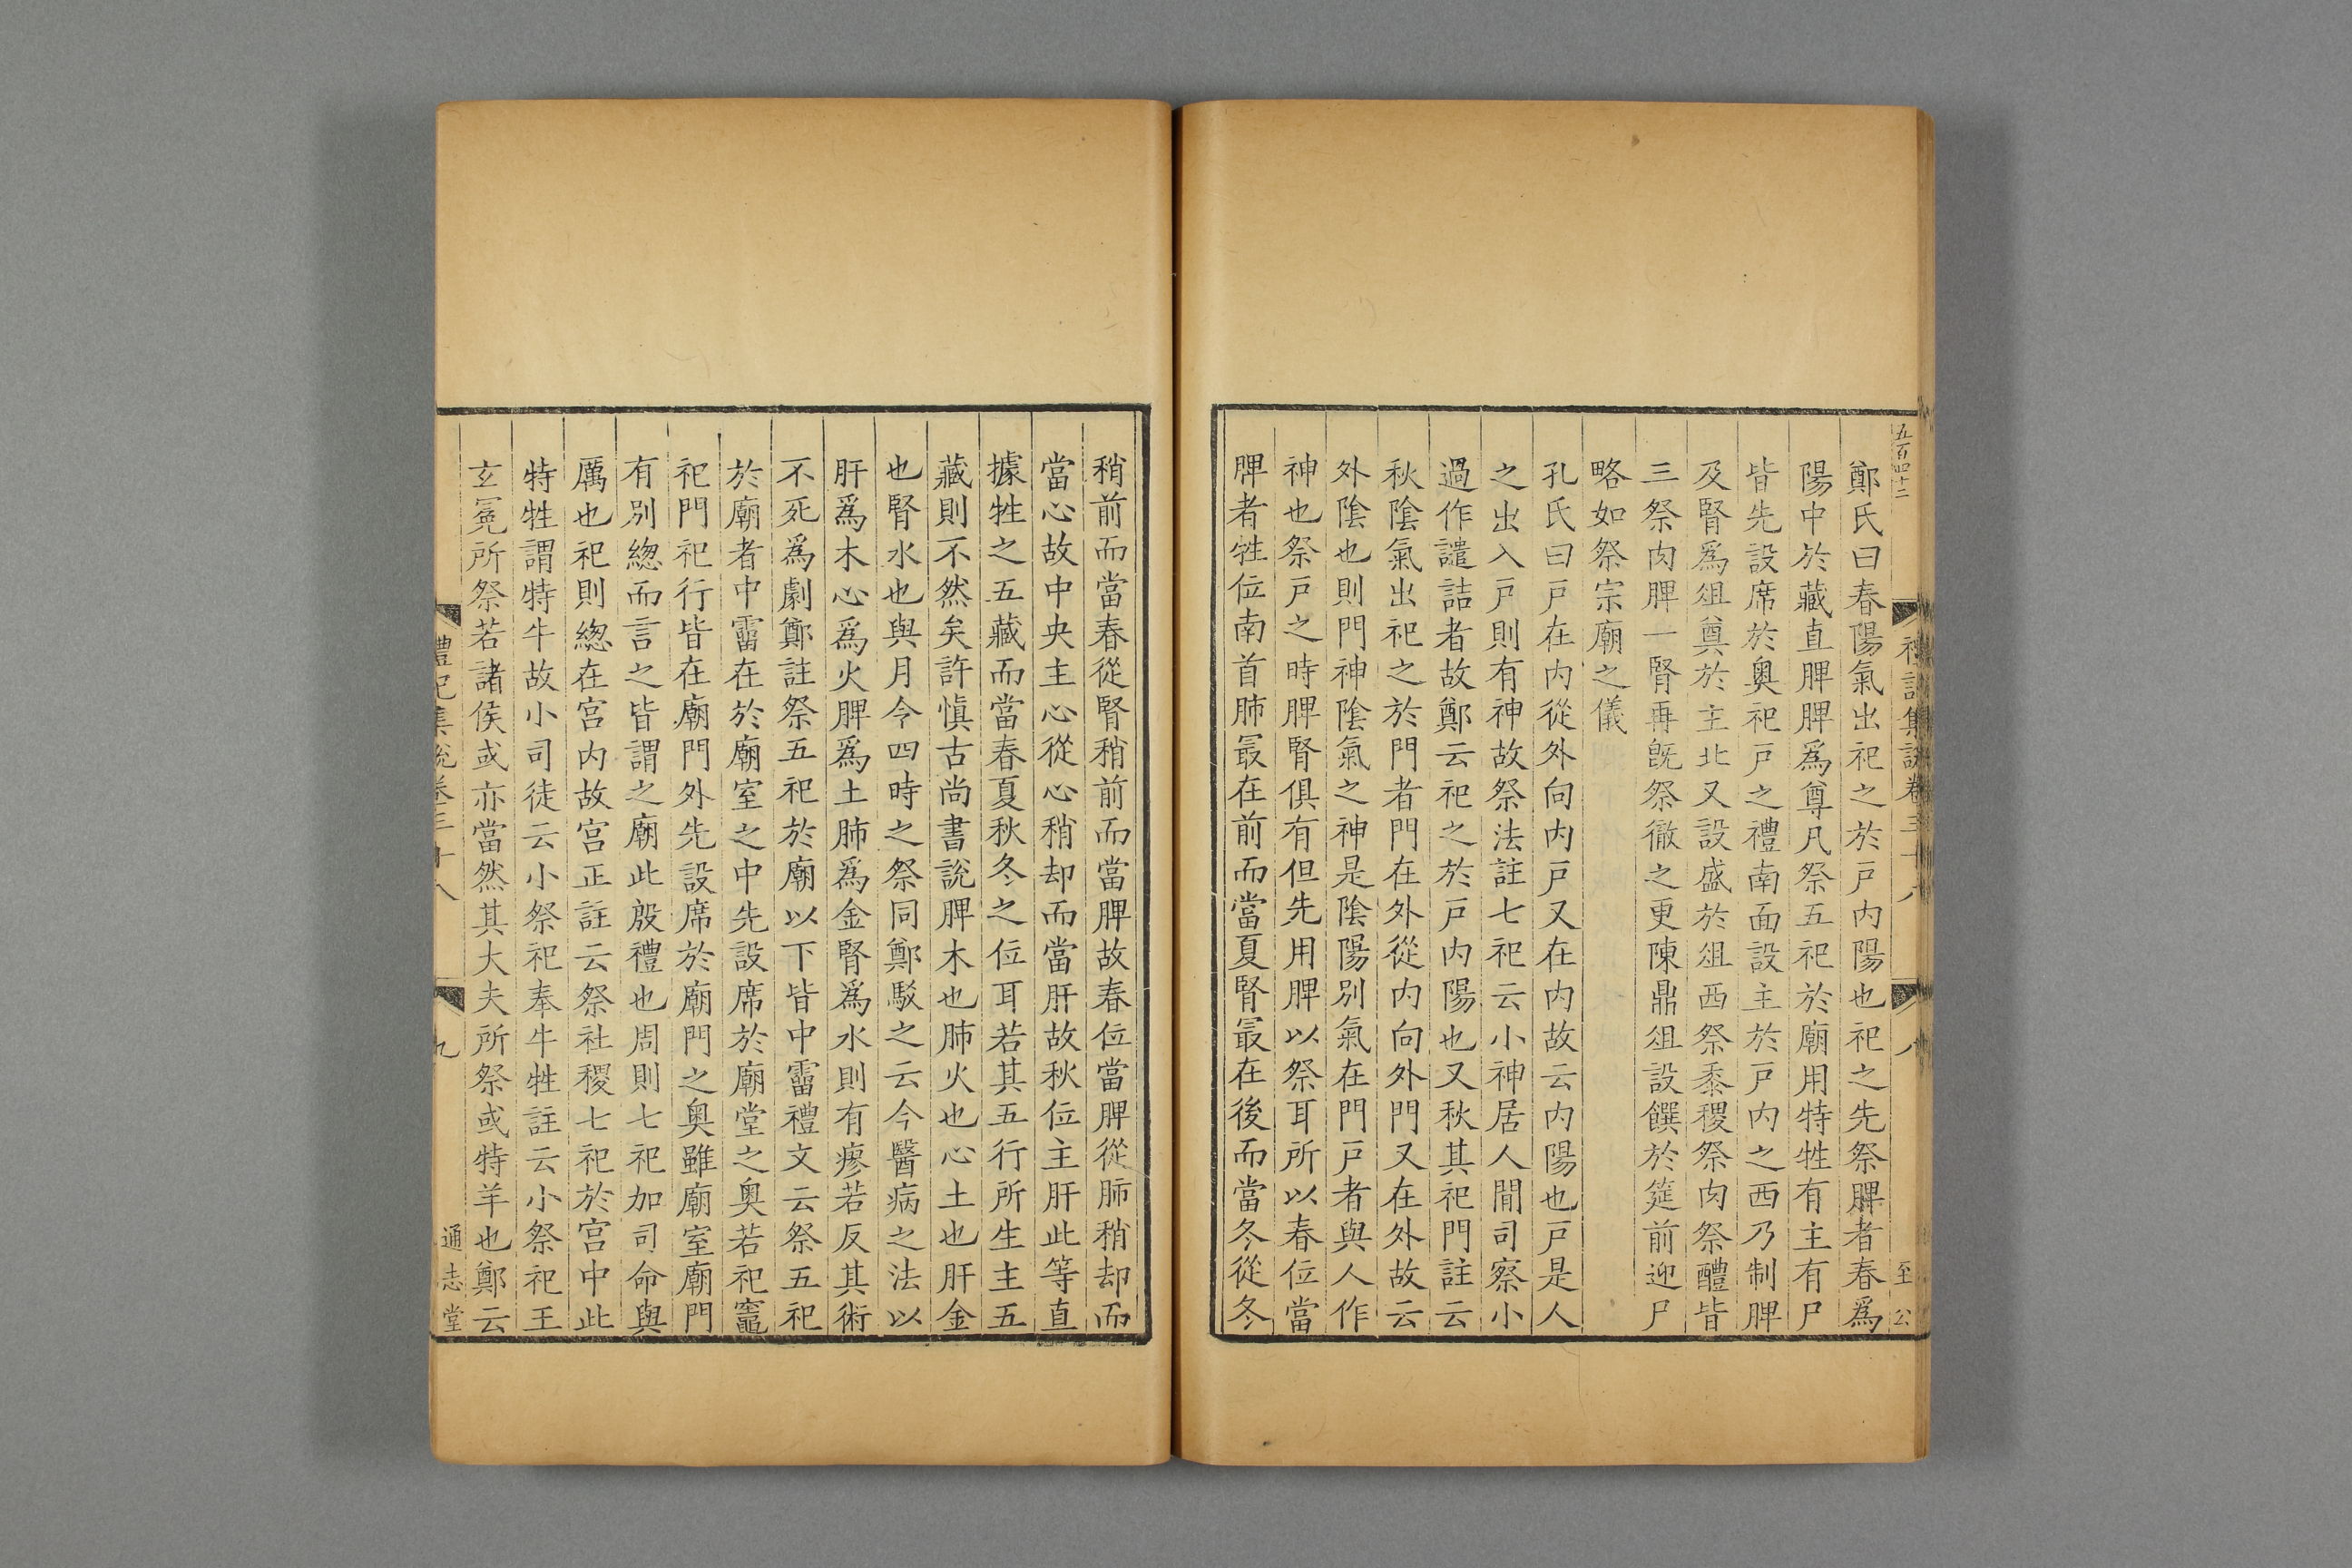 五百四十二
禮記集說卷三十八
八
至公
鄭氏曰春陽氣出祀之於戸内陽也祀之先祭脾者春爲
陽中於藏直脾脾爲尊凡祭五祀於廟用特牲有主有尸
皆先設席於奥祀戸之禮南面設主於戸内之西乃制脾
及腎爲俎奠於主北又設盛於俎西祭黍稷祭肉祭醴皆
三祭肉脾一腎再旣祭徹之更陳鼎俎設饌於筵前迎尸
略如祭宗廟之儀
孔氏曰戸在内從外向内戸又在内故云内陽也戸是人
之出入戸則有神故祭法註七祀云小神居人間司察小
過作譴詰者故鄭云祀之於戸内陽也又秋其祀門註云
秋陰氣出祀之於門者門在外從内向外門又在外故云
外陰也則門神陰氣之神是陰陽別氣在門戸者與人作
神也祭戸之時脾腎俱有但先用脾以祭耳所以春位當
脾者牲位南首肺冣在前而當夏腎冣在後而當冬從冬
稍前而當春從腎稍前而當脾故春位當脾從肺稍却而
當心故中央主心從心稍却而當肝故秋位主肝此等直
據牲之五藏而當春夏秋冬之位耳若其五行所生主五
藏則不然矣許愼古尚書說脾木也肺火也心土也肝金
也腎水也與月令四時之祭同鄭駁之云今醫病之法以
肝爲木心爲火脾爲土肺爲金腎爲水則有瘳若反其術
不死爲劇鄭註祭五祀於廟以下皆中霤禮文云祭五祀
於廟者中霤在於廟室之中先設席於廟堂之奥若祀竈
祀門祀行皆在廟門外先設席於廟門之奥雖廟室廟門
有別緫而言之皆謂之廟此殷禮也周則七祀加司命與
厲也祀則緫在宮内故宮正註云祭社稷七祀於宮中此
特牲謂特牛故小司徒云小祭祀奉牛牲註云小祭祀王
玄冕所祭若諸侯或亦當然其大夫所祭或特羊也鄭云
禮記集說卷三十八
九
通志堂